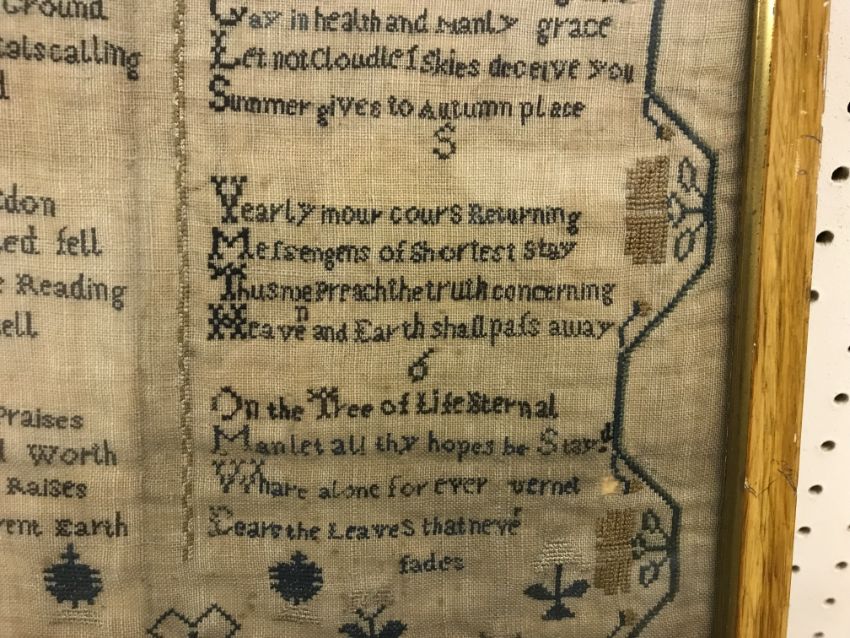 Ground
calling
Gay in health and Manly grace
Let not Cloudleſs skies deceive you
Summer gives to Autumn place
5
don
fell
Reading
ell
Yearly in our cours Returning
Meſsengens of Shortest Stay
Thus we Preach the truth concerning
Heaven and Earth shall paſs away
6
Praises
Worth
Raises
Earth
On the Tree of Life Eternal
Man let all thy hopes be Stayd
Whare alone for ever vernel
Bears the Leaves that never
fades